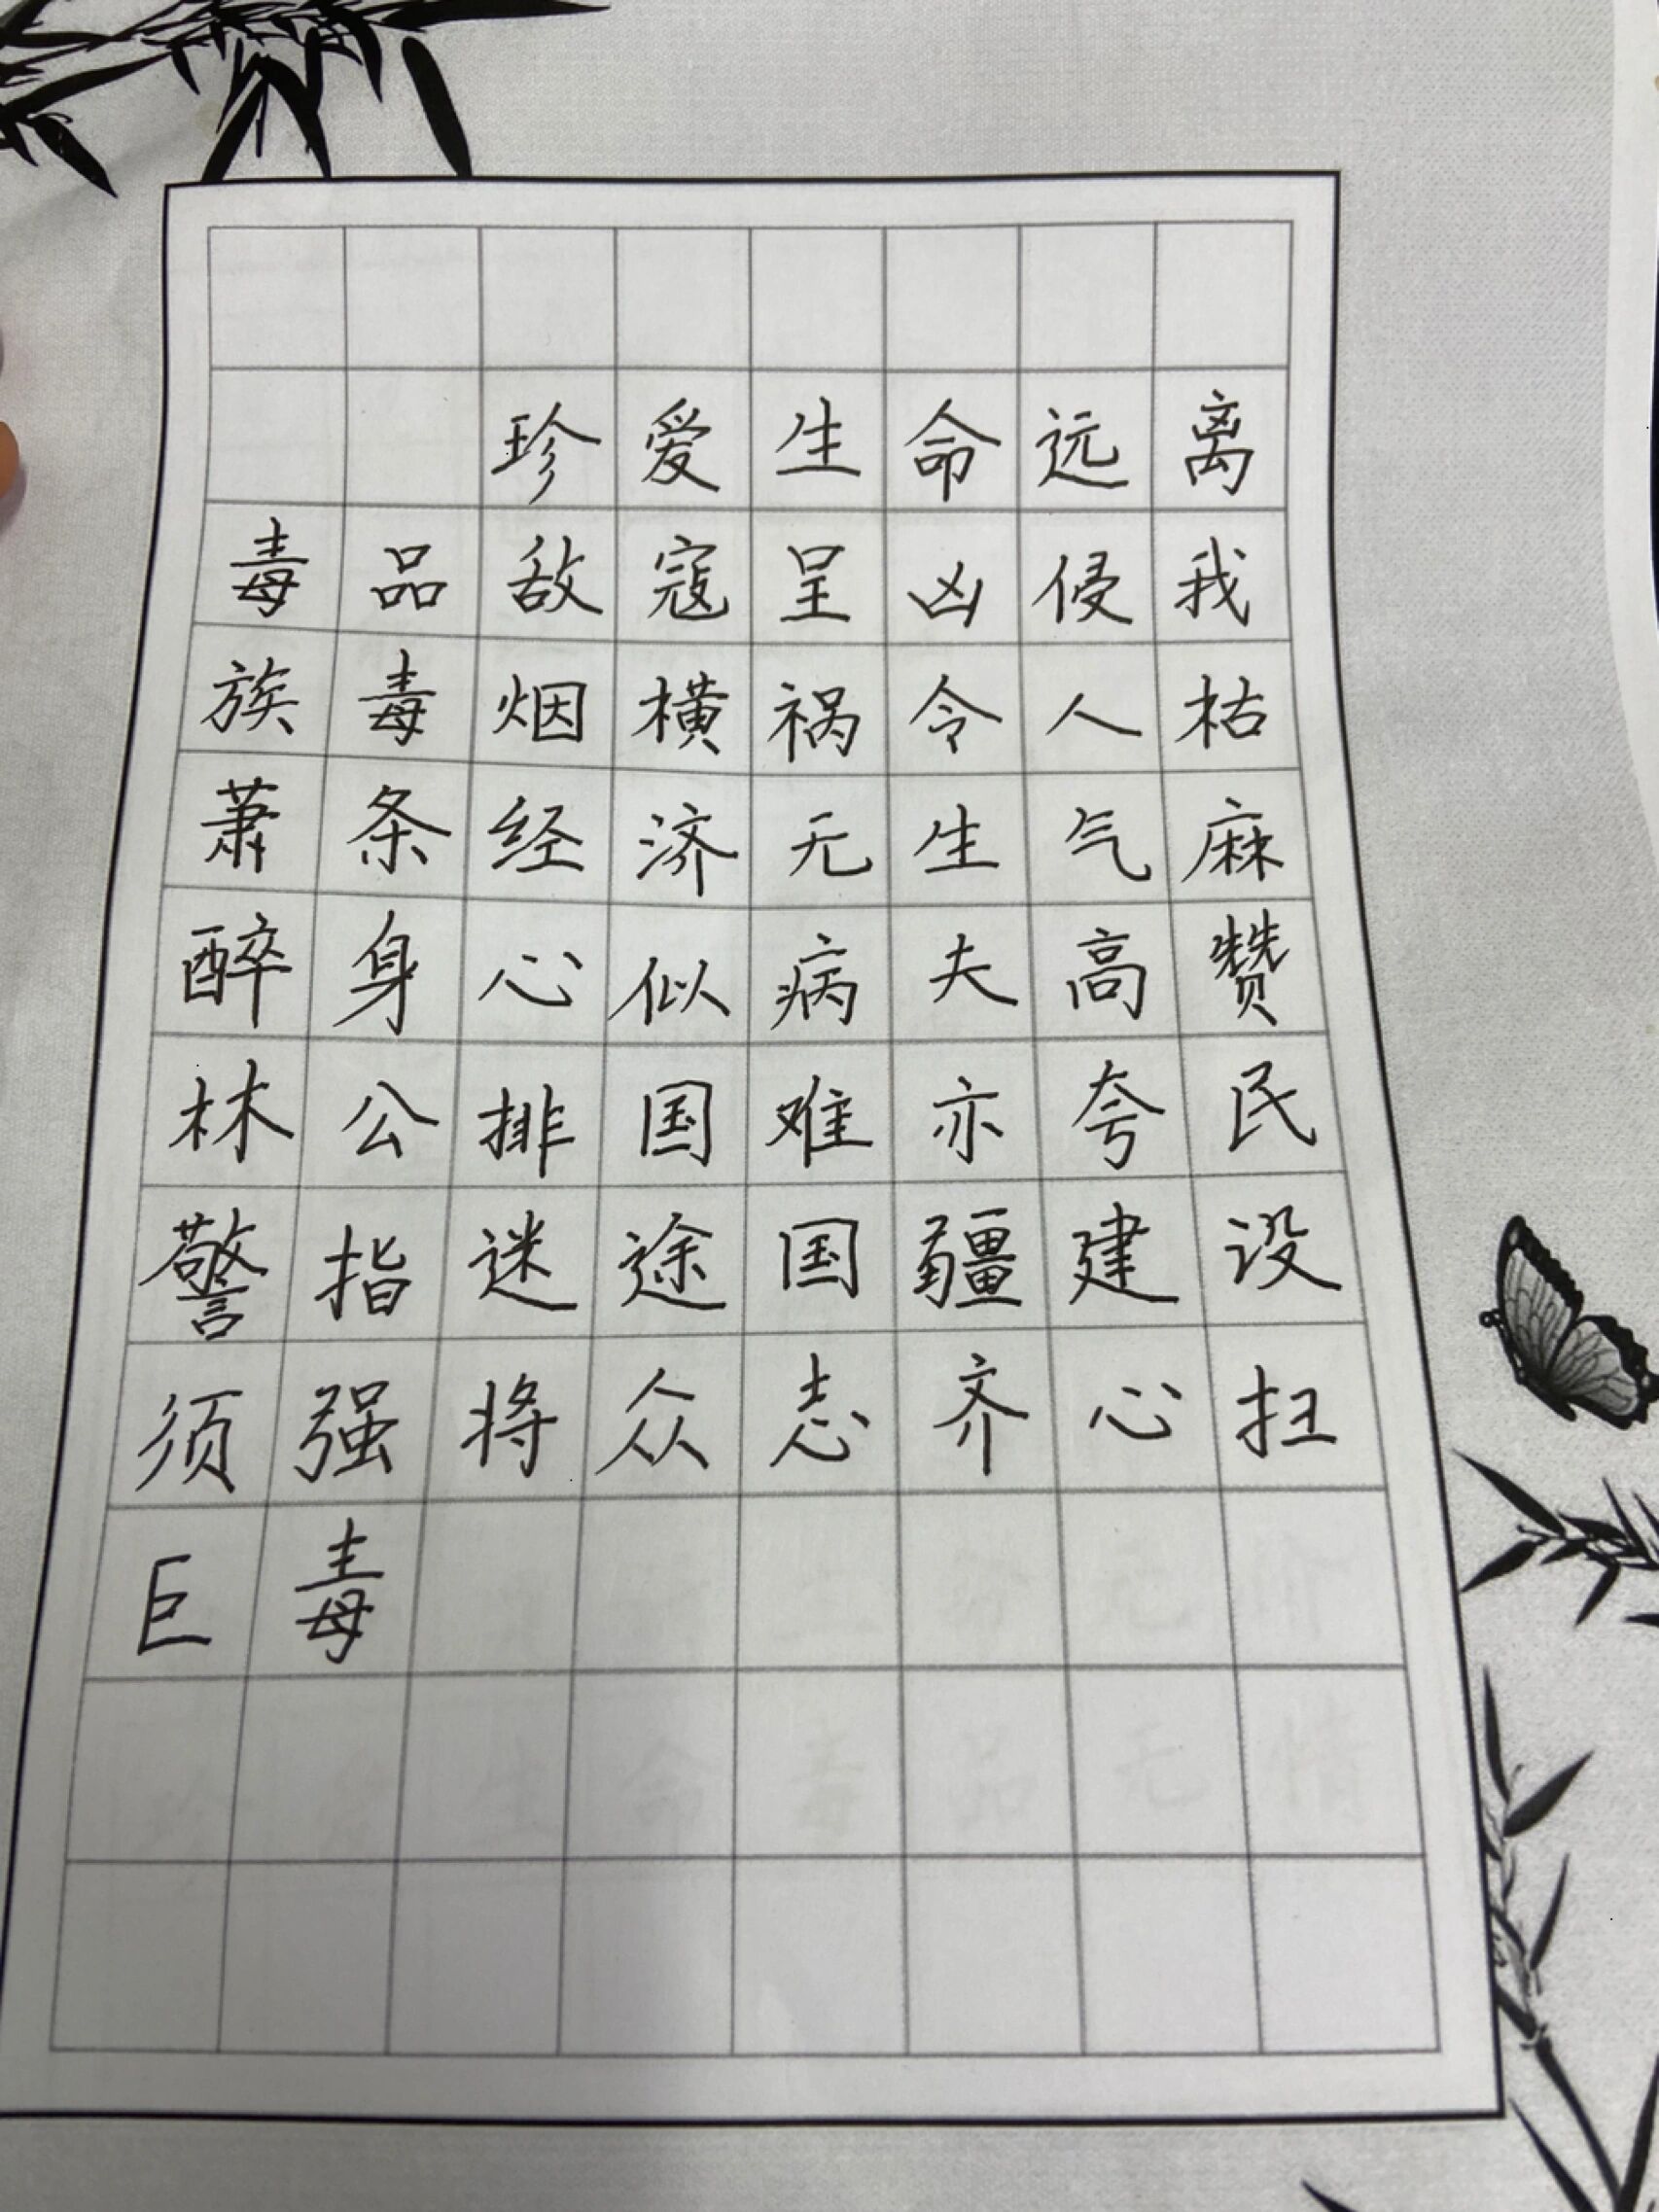 珍爱生命远离
毒品敌寇呈凶侵我
族毒烟横祸令人枯
萧条经济无生气麻
醉身心似病夫高赞
林公排国难亦夸民
警指迷途国疆建设
须强将众志齐心扫
巨毒